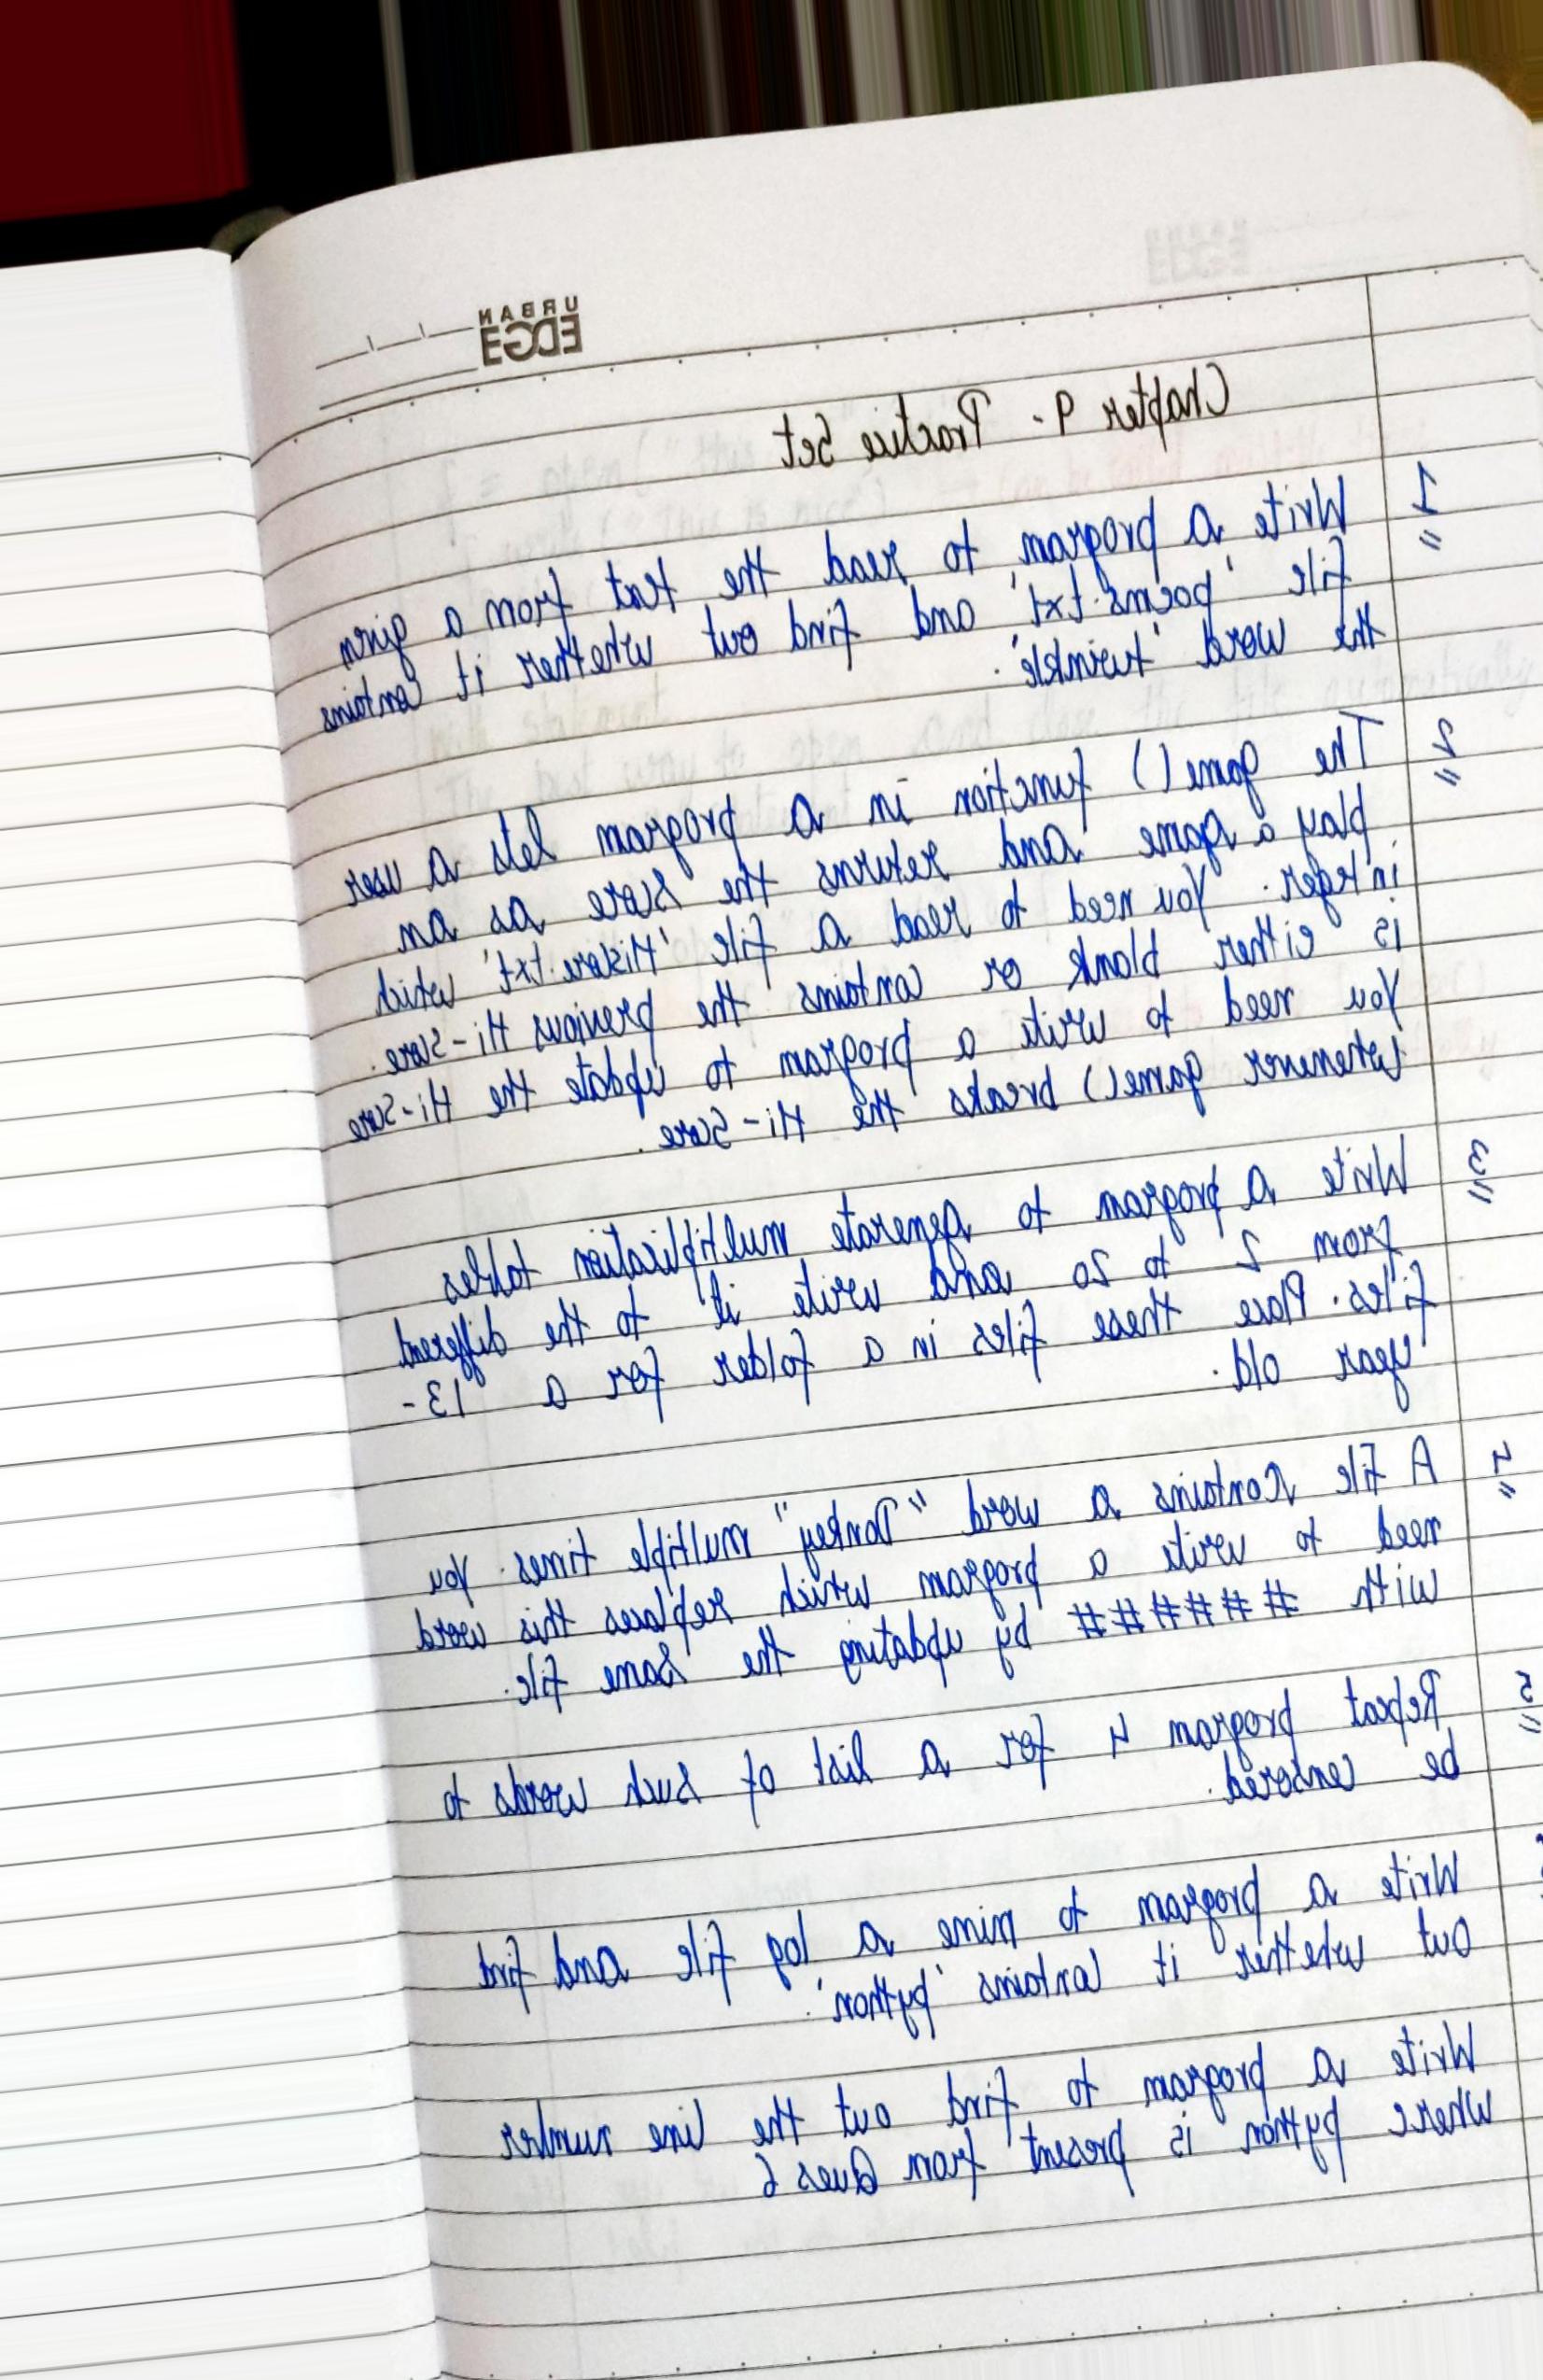 URBAN
EDGE
Chapter 9 - Practice Set
1 Write a program to read the text from a given
file 'poems.txt' and find out whether it contains
the word 'twinkle'.
2 The game() function in a program lets a user
play a game and returns the score as an
integer. You need to read a file 'Hiscore.txt' which
is either blank or contains the previous Hi-Score.
You need to write a program to update the Hi-Score
whenever game() breaks the Hi-Score.
3 Write a program to generate multiplication tables
from 2 to 20 and write it to the different
files. Place these files in a folder for a 13-
year old.
4 A file contains a word "Donkey" multiple times. You
need to write a program which replaces this word
with ###### by updating the same file.
5 Repeat program 4 for a list of such words to
be censored.
Write a program to mime a log file and find
out whether it contains 'python'.
Write a program to find out the line number
where python is present from Ques 6